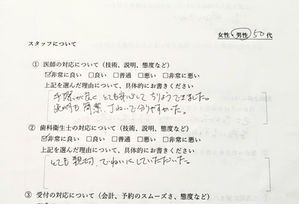 女性・男性 50代
スタッフについて
① 医師の対応について（技術、説明、態度など）
☑非常に良い □良い □普通 □悪い □非常に悪い
上記を選んだ理由について、具体的にお書きください
手際が良く とても安心して
説明も 簡潔、ていねいで分りやすかった。
② 歯科衛生士の対応について（技術、説明、態度など）
☑非常に良い □良い □普通 □悪い □非常に悪い
上記を選んだ理由について、具体的にお書きください
とても親切、ていねいにしていただいた。
③ 受付の対応について（会計、予約のスムーズさ、態度など）